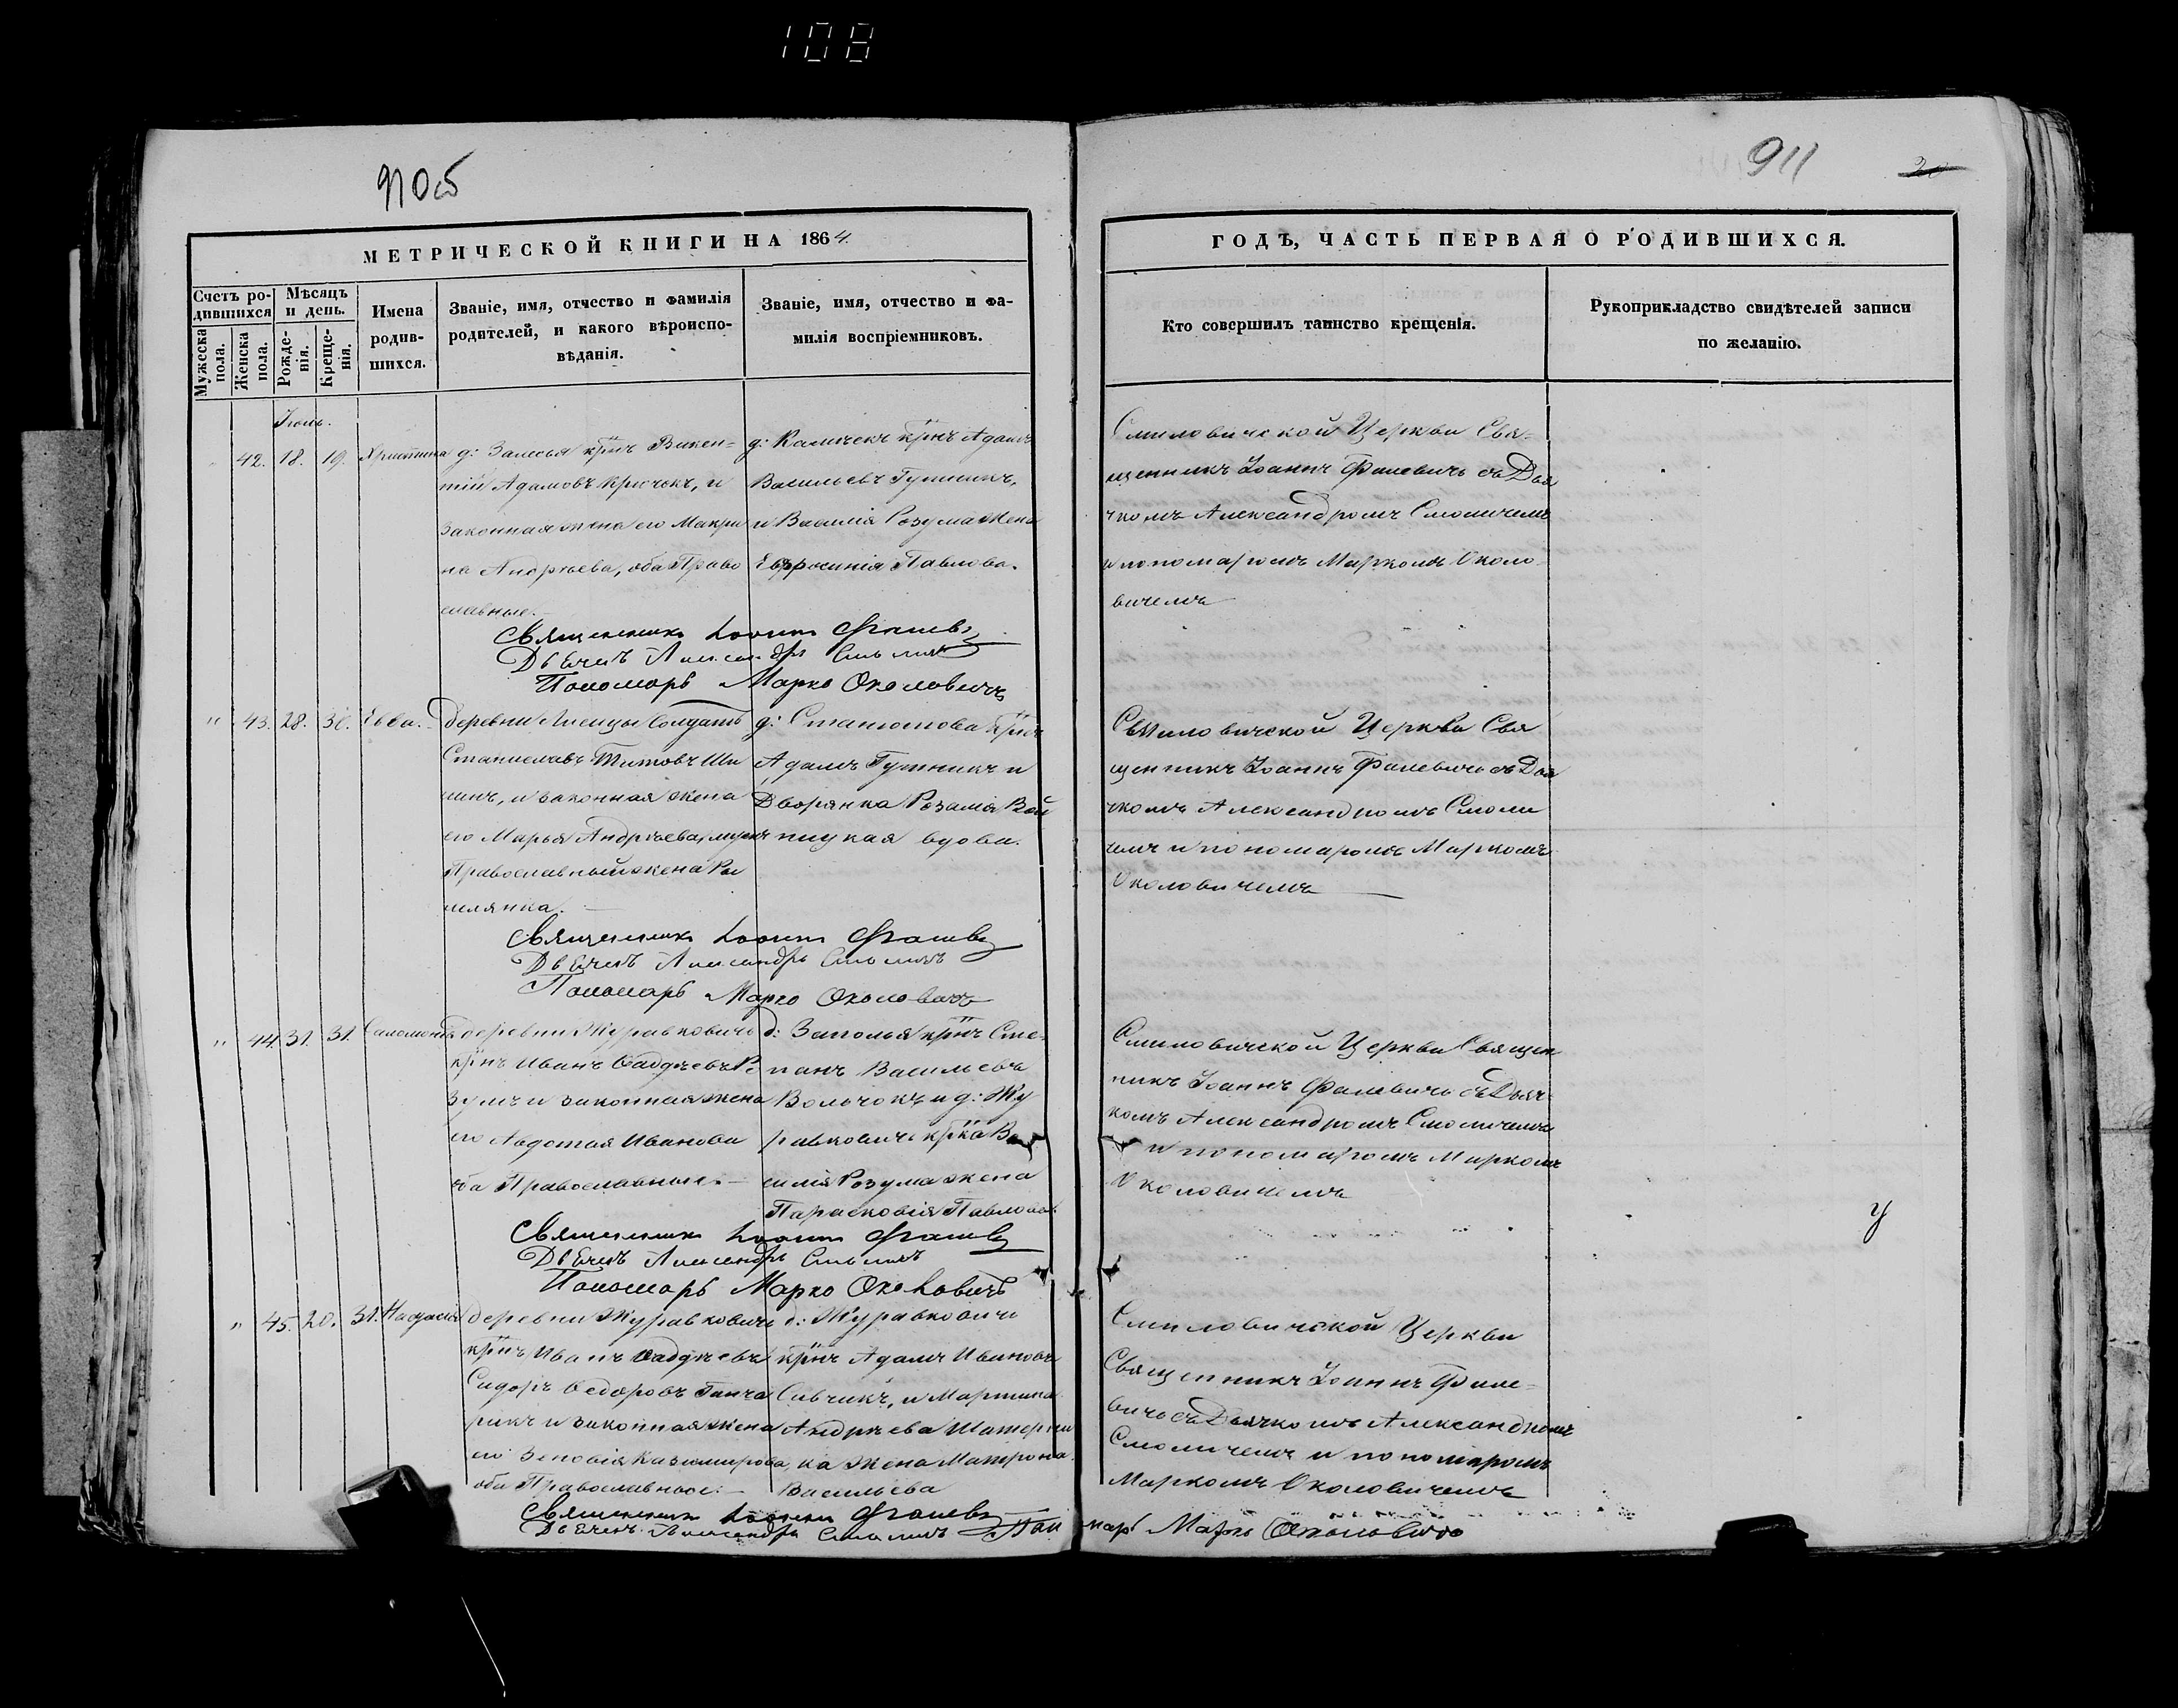 108
910об
911
20
МЕТРИЧЕСКОЙ КНИГИ НА 1864
ГОДЪ, ЧАСТЬ ПЕРВАЯ О РОДИВШИХСЯ.
Счетъ ро-
дившихся
Мужеска
пола.
Женска
пола.
Мѣсяцъ
и день.
Рожде-
нія.
Креще-
нія.
Имена
родив-
шихся.
Званіе, имя, отчество и фамилія
родителей, и какого вѣроиспо-
вѣданія.
Званіе, имя, отчество и фа-
милія воспріемниковъ.
Кто совершилъ таинство крещенія.
Рукоприкладство свидѣтелей записи
по желанію.
42. 18. 19. Христина
д: Залесья крнъ Викен-
тій Адамовъ Крючекъ, и
законная жена его Макри
на Андрѣева, оба Право
славные.
д: крнъ Адамъ
Васильевъ Гутникъ,
и Василія Розума жена
Евфросинія Павлова.
Смиловичской Церкви Свя-
щенникъ Іоаннъ Фалевичъ съ Дья
чкомъ Александромъ Смоличемъ
и пономаромъ Маркомъ Около
вичемъ
Священникъ Іоаннъ Фалевичъ
Дьячекъ Александръ Смоличъ
Пономарь Марко Околовичъ
" 43. 28. 30. Евва.
деревни Солдатъ
Станиславъ Титовъ Ши
и законная жена
его Марья Андрѣева, мужъ
Православный жена Ри
млянка.
д: Станютова крнъ
Адамъ Гутникъ и
Дворянка Розалія Вой
ницкая вдова.
Смиловичской Церкви Свя
щенникъ Іоаннъ Фалевичъ съ Дья
чкомъ Александромъ Смоли
чемъ и пономаромъ Маркомъ
Околовичемъ
Священникъ Іоаннъ Фалевичъ
Дьячекъ Александръ Смоличъ
Пономарь Марко Околовичъ
" 44. 31. 31.
деревни Журавковичъ
крнъ Иванъ Фаддѣевъ Ро
зумъ и законная жена
его Авдотья Иванова
оба Православные.
д: Заполья крнъ Сте-
панъ Васильевъ
Волчокъ и д: Жу
равковичъ крка Ва
силія Розума жена
Парасковія Павлова
Смиловичской Церкви Священ
никъ Іоаннъ Фалевичъ съ Дьяч
комъ Александромъ Смоличемъ
и пономаромъ Маркомъ
Околовичемъ
У
Священникъ Іоаннъ Фалевичъ
Дьячекъ Александръ Смоличъ
Пономарь Марко Околовичъ
" 45. 20. 31.
деревни Журавковичъ
крнъ Иванъ Фаддѣевъ
Сидоръ Ѳедоровъ Ганча
рикъ и законная жена
его Зеновія Казимирова,
оба Православные.
д: Журавковичъ
крнъ Адамъ Ивановъ
Савчикъ, и Мартина
Андрѣева Шатерни
ка жена Матрона
Васильева
Смиловичской Церкви
Священникъ Іоаннъ Фале-
вичъ съ Дьячкомъ Александромъ
Смоличемъ и пономаромъ
Маркомъ Околовичемъ
Священникъ Іоаннъ Фалевичъ
Дьячекъ Александръ Смоличъ Пономарь Марко Околовичъ